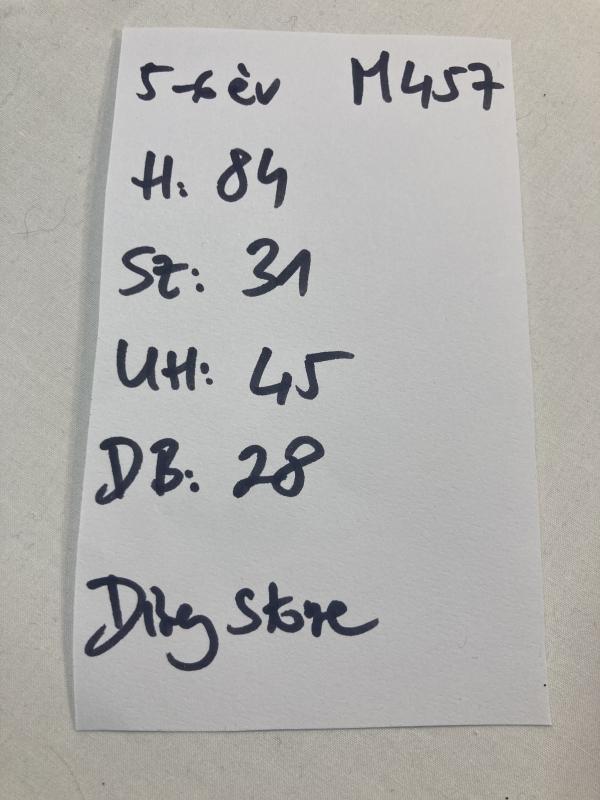 5-6 év M457
H: 84
Sz: 31
UH: 45
DB: 28
Store